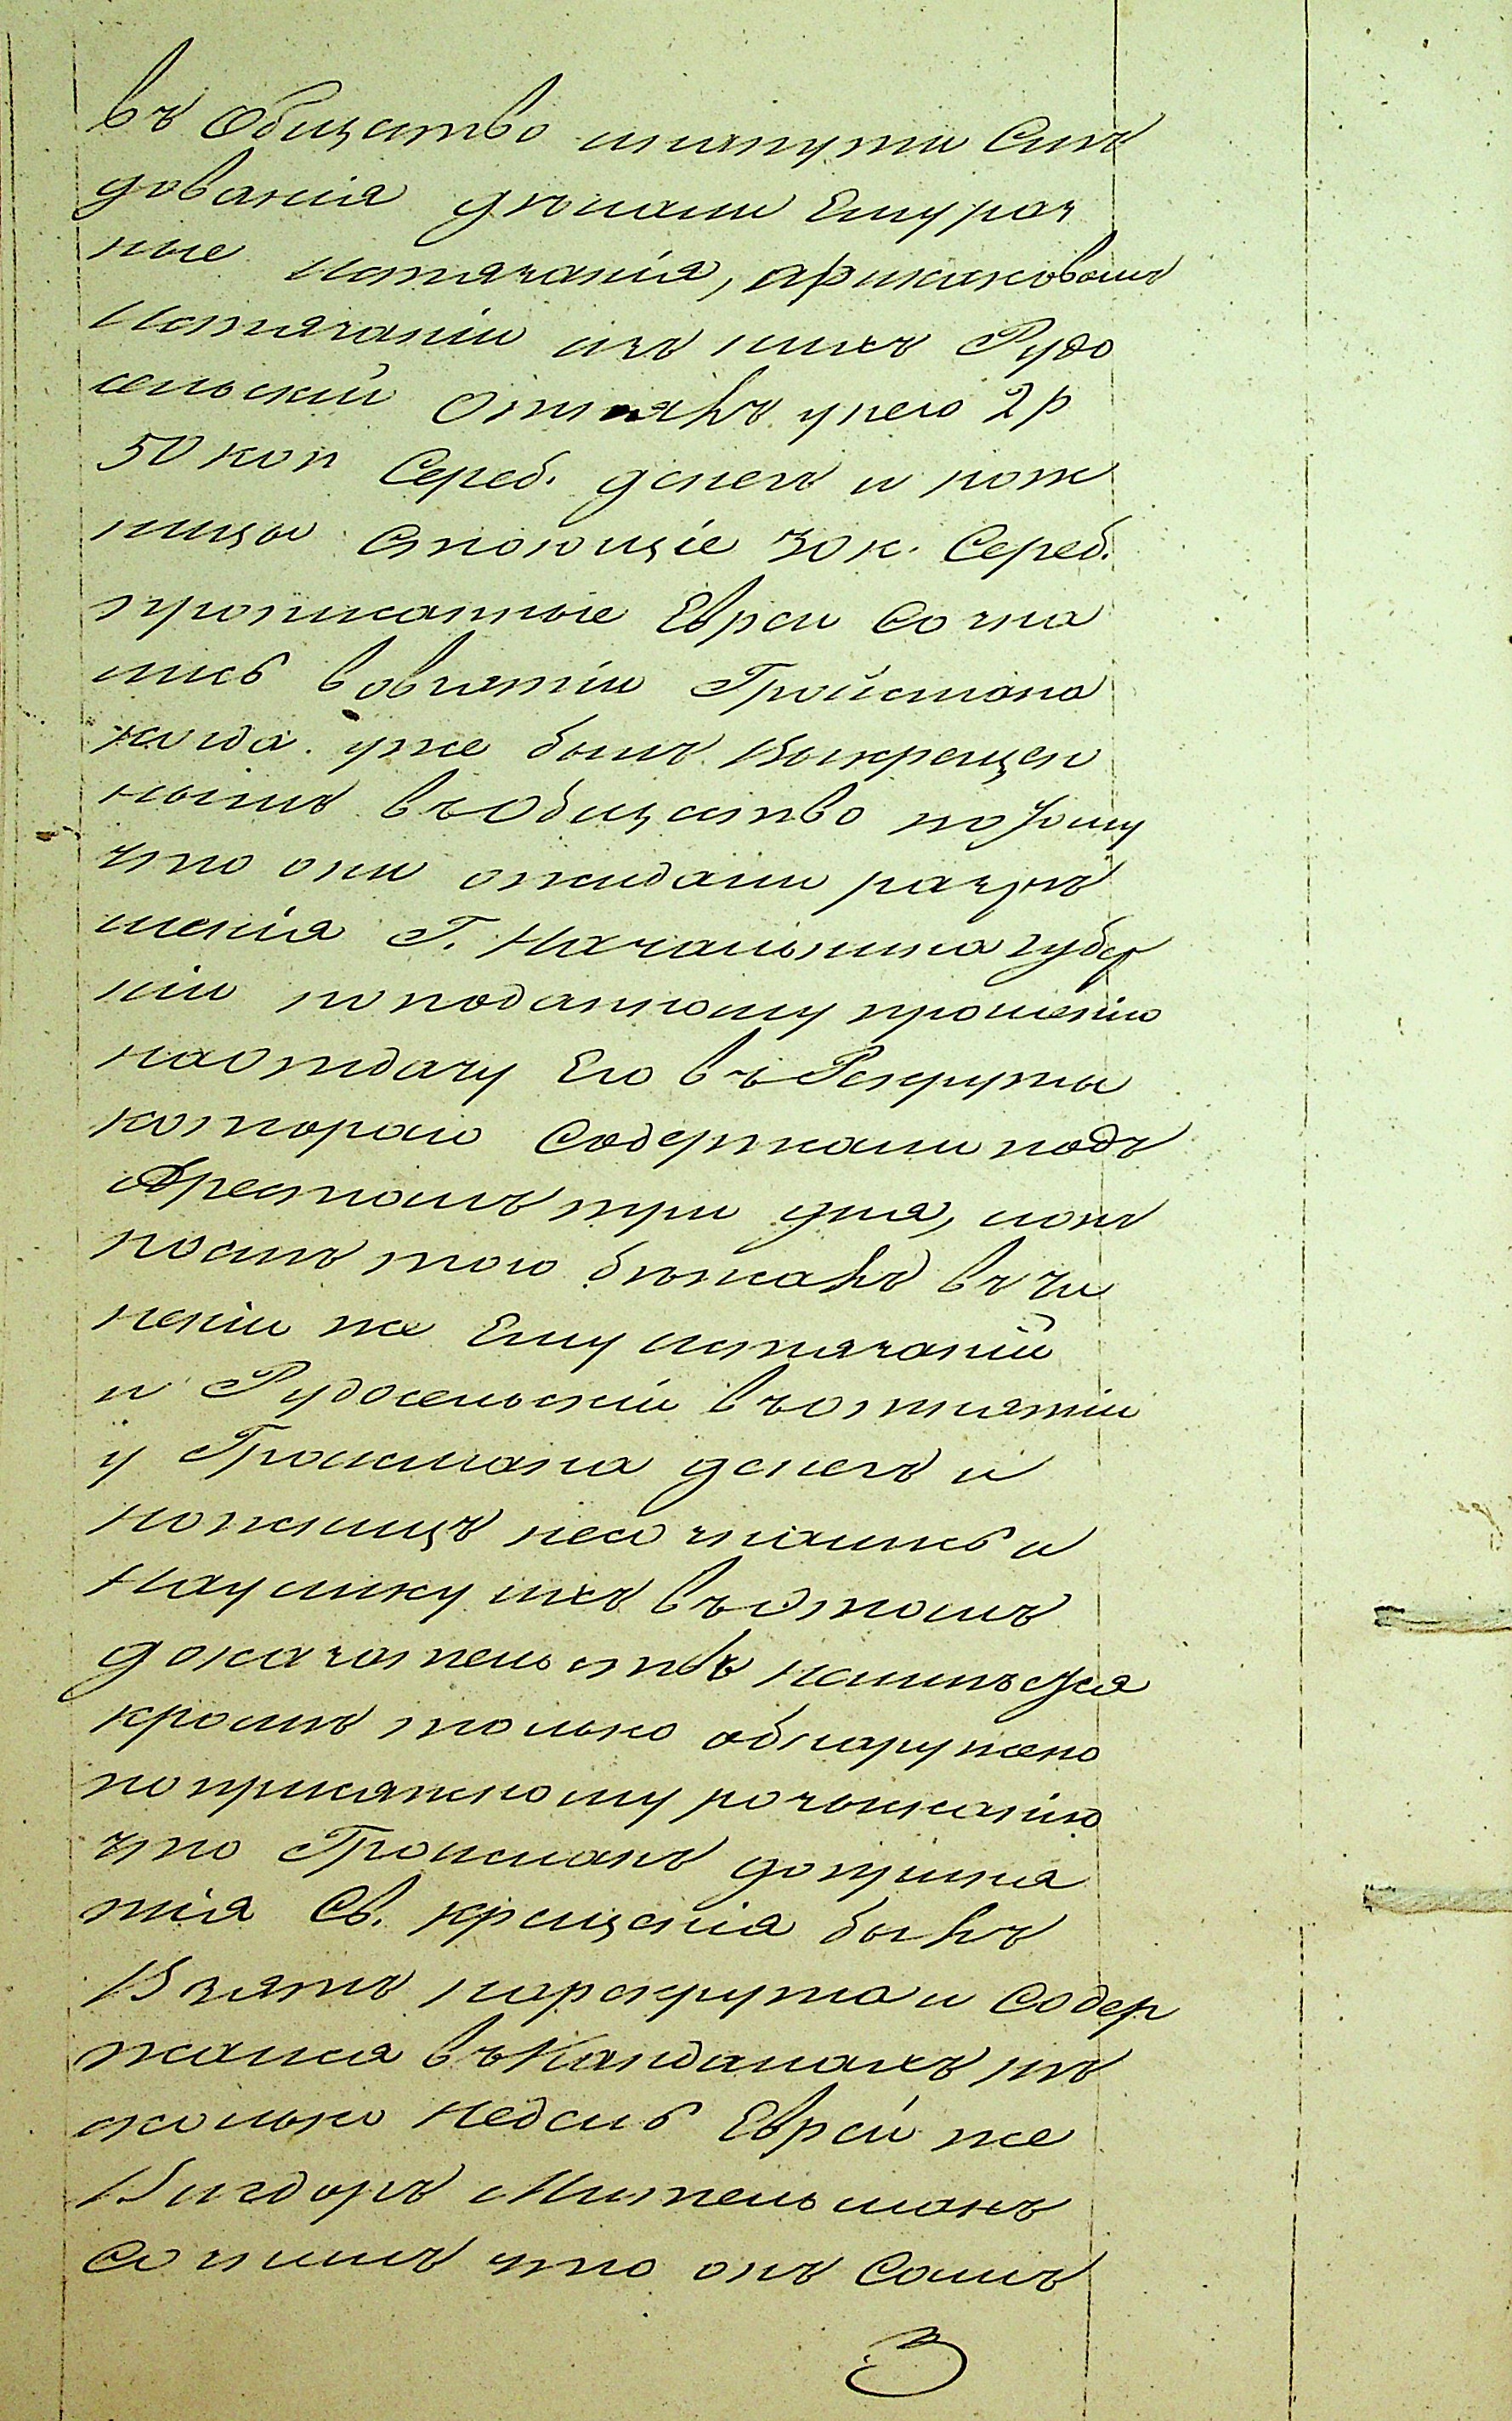 въ Общество и напути Слѣ
дованія дѣлали Ему раз
ные истязанія, при каковомъ
истязаніи изъ нихъ Рудо
сельскій Отнялъ унего 2 р
50 коп Сереб. денегъ и нож
ницы Стоющіе 30 к. Сереб.
прописанные Евреи Созна
лись вовзятіи Гройсмана
когда уже былъ Выкрещен
нымъ въ Общество потому
что они ожидали разрѣ
шенія Г. Начальника губер
ніи по поданному прошенію
наотдачу Его въ Рекруты
котораго Содержали подъ
Арестомъ три дня, исъ
послѣ того бѣжалъ въ чи
неніи же Ему истязаній
и Рудосельскій въ отнятіи
у Гройсмана денегъ и
ножницъ несознались и
Наулику ихъ въ Этомъ
доказательствъ неимѣется
кромѣ только обнаружено
поприсяжному розысканію
что Гройсманъ доприня
тія Св. крещенія былъ
Взятъ нарекрута и Содер
жался въ Кандалахъ нѣ
сколько Недель Еврей же
Вигдоръ Мительманъ
Сознался что онъ Самъ